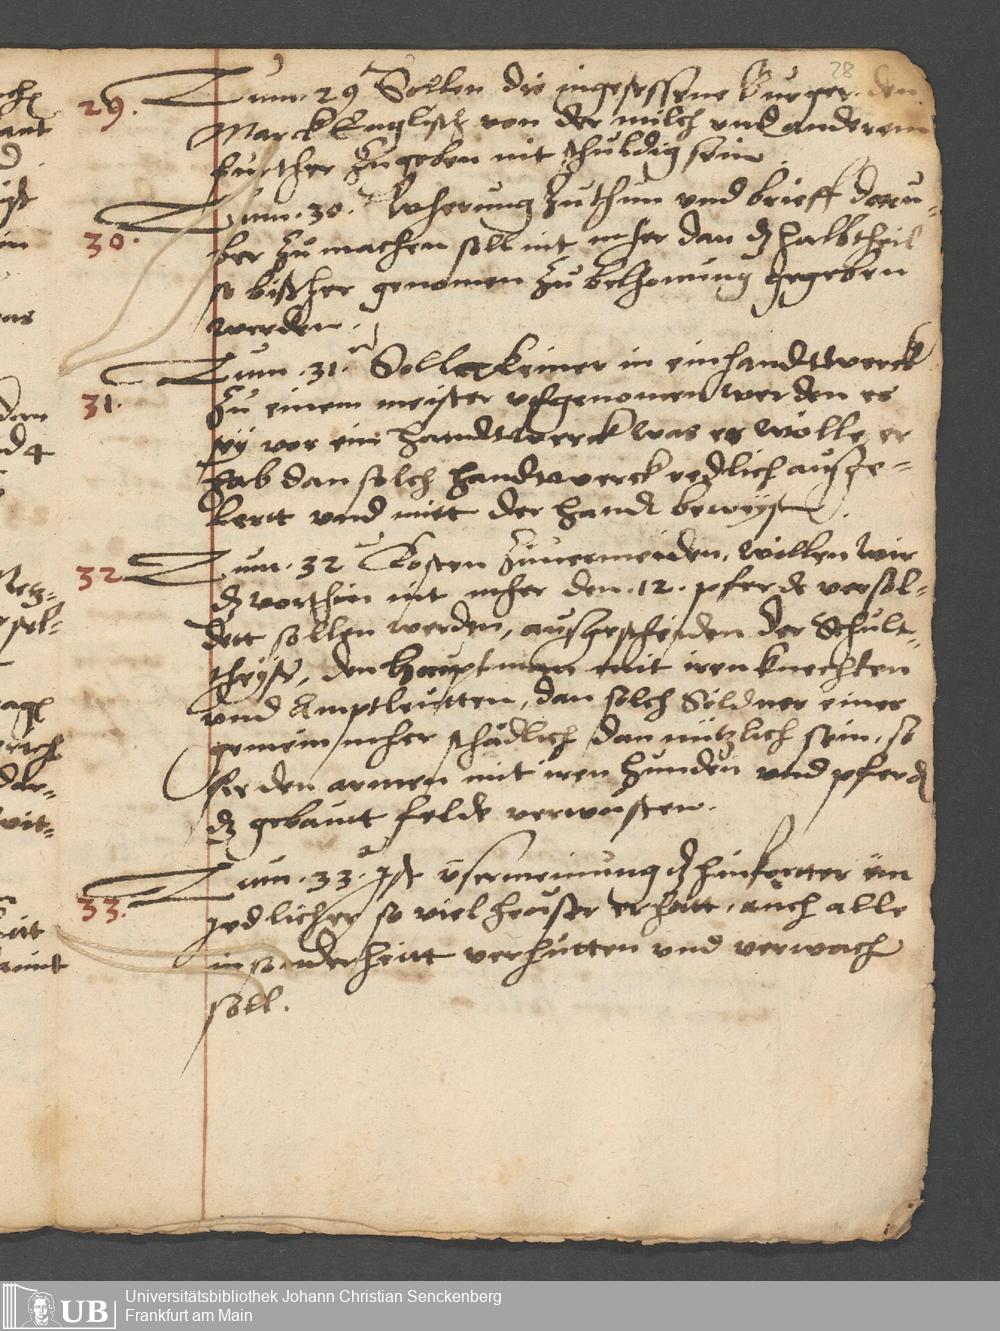 28
29. Zum .29. Sollen die ingesessene burger den
Marck Englisch von der milch vnd anderem
further zu geben nit schuldig sein
30. Zum .30. Wherung zu thun vnd brieff daru-
ber zu machen soll nit mher dan dz halbtheil
so bißher genomen zu belhonung gegeben
werden.
31. Zum .31. Soll keiner in ein handtwerck
zu einem meister vfgenomen werden es
sey vor ein handtwerck was es wölle er
hab dan solch handtwerck redlich außge-
lertt vnd mitt der handt bewyst.
32. Zum .32. Costen zuuermeiden, willen wir
dz vorthin nit mher den .12. pferde versöl-
dett sollen werden, ausgescheiden der Schult-
theyß, den hauptman mit iren knechten
vnd Amptleutten, dan solch Söldner einer
gemein mher schädlich dan nützlich sein, so
sie den armen mit iren hunden vnd pferden
dz gebautt felde verwusten.
33. Zum .33. Ist vser meinung dz hinfertter ein
jedlicher so viel heußer er hatt, auch alle
in sonderheitt verhutten vnd verwach
soll.
UB
Universitätsbibliothek Johann Christian Senckenberg
Frankfurt am Main